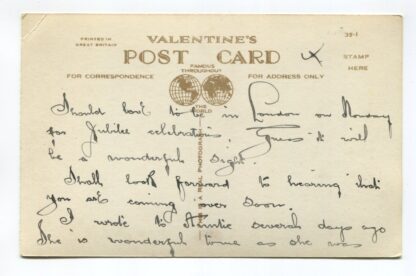 VALENTINE'S
PRINTED IN
GREAT BRITAIN
POST CARD
39-1
STAMP
HERE
FAMOUS
THROUGHOUT
THE
WORLD
FOR CORRESPONDENCE
FOR ADDRESS ONLY
IS A REAL PHOTOGRAPH
Should love to be in London on Monday
for Jubilee celebrations. Guess it will
be a wonderful sight.
Shall look forward to hearing that
you are coming over soon.
I wrote to Auntie several days ago
She is wonderful as she was